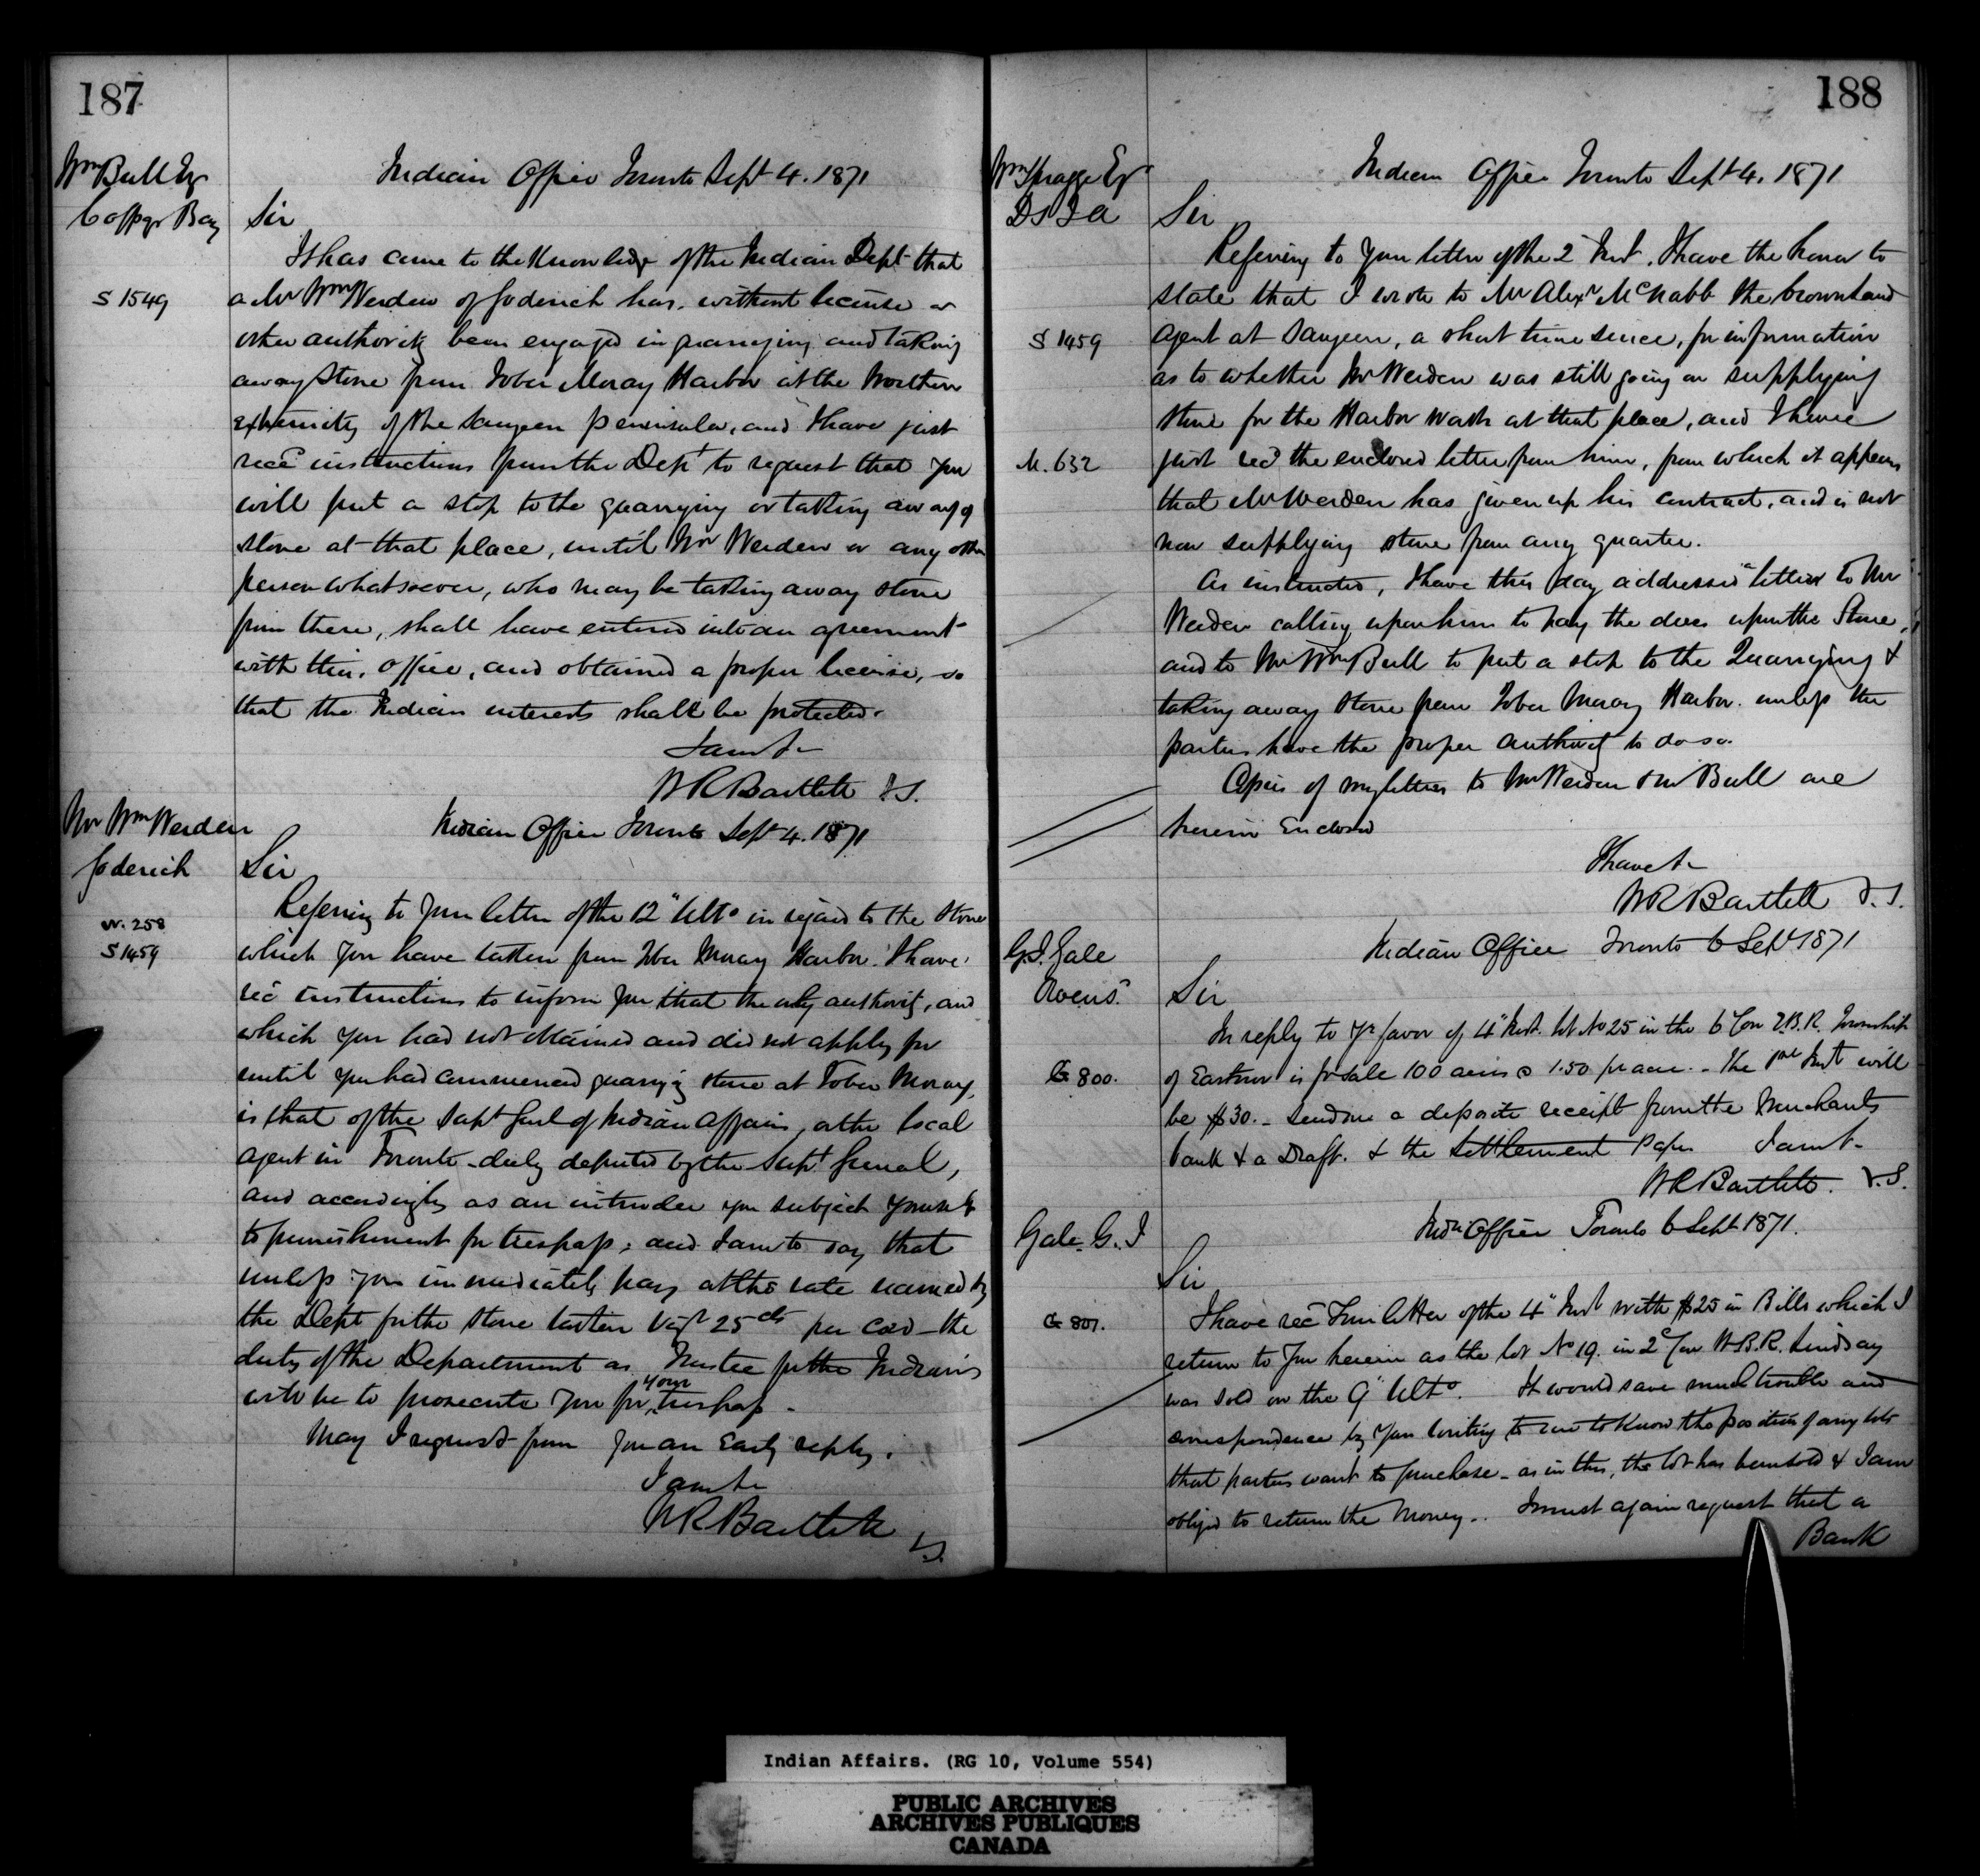 187
Wm Bull Esq
Colpoys Bay
Indian Office Toronto Sept 4. 1871
Sir
S 1549
It has came to the Knowledge of the Indian Dept that
a Mr Wm Werden of Goderich has, without license or
other authority been engaged in quarrying and taking
away Stone from Tober Moray Harbor at the Northern
extremity of the Saugeen peninsula, and I have just
recd instructions from the Dept to request that you
will put a stop to the quarrying or taking away of
stone at that place, until Mr Werden or any other
person whatsoever, who may be taking away stone
from there, shall have entered into an agreement
with this office, and obtained a proper license, so
that the Indian interests shall be protected.
I am &c
W R Bartlett V.S.
Mr Wm Werden
Goderich
W. 258
S 1459
Indian Office Toronto Sept 4. 1871
Sir
Referring to your letter of the 12" Ulto in regard to the Stone
which you have taken from Tober Moray Harbor. I have
recd instructions to inform you that the only authority, and
which you had not obtained and did not apply for
until you had commenced quarrying stone at Tober Moray,
is that of the Supt Genl of Indian Affairs, or the local
agent in Toronto duly deputed by the Supt General,
and accordingly as an intruder you subject yourself
to punishment for trespass; and I am to say that
unless you immediately pay at the rate named by
the Dept for the stone taken vizt 25 cts per cord the
duty of the Department as Trustee for the Indians
will be to prosecute you for your trespass.
May I request from you an early reply.
I am &c
W R Bartlett V.S.
188
Wm Spragge Esq
D S I A
Indian Office Toronto Sept 4. 1871
Sir
S 1459
M. 632
Referring to your letter of the 2" Inst. I have the honor to
state that I wrote to Mr Alexr McNabb the Crown Land
agent at Saugeen, a short time since, for information
as to whether Mr Werden was still going on supplying
stone for the Harbor work at that place, and I have
just recd the enclosed letter from him, from which it appears
that Mr Werden has given up his contract, and is not
now supplying stone from any quarter.
As instructed, I have this day addressed a letter to Mr
Werden calling upon him to pay the dues upon the Stone,
and to Mr Wm Bull to put a stop to the Quarrying &
taking away stone from Tober Moray Harbor unless the
parties have the proper authority to do so.
Copies of my letters to Mr Werden & Mr Bull are
herein Enclosed
I have &c
W R Bartlett V.S.
G. J. Gale
Owens.
G 800.
Indian Office Toronto 6 Sept 1871
Sir
In reply to yr favor of 4" Inst. lot No 25 in the 6 Con E.B.R. Township
of Eastnor is for sale 100 acres @ 1.50 pr acre. - The 1st Inst will
be $30. - Send me a deposit receipt from the Merchants
bank & a Draft. & the Settlement Paper I am &c
W R Bartlett. V.S.
Gale. G. J
G 801.
Indn Office Toronto 6 Sept 1871.
Sir
I have recd your letter of the 4" Inst with $25 in Bills which I
return to you herein as the lot No 19. in 2d Con W.B.R. Lindsay
was sold on the 9" Ulto. It would save much trouble and
correspondence by your writing to me to know the position of any lots
that parties want to purchase - as in this, the lot has been sold & I am
obliged to return the money.. I must again request that a
Bank
Indian Affairs. (RG 10, Volume 554)
PUBLIC ARCHIVES
ARCHIVES PUBLIQUES
CANADA